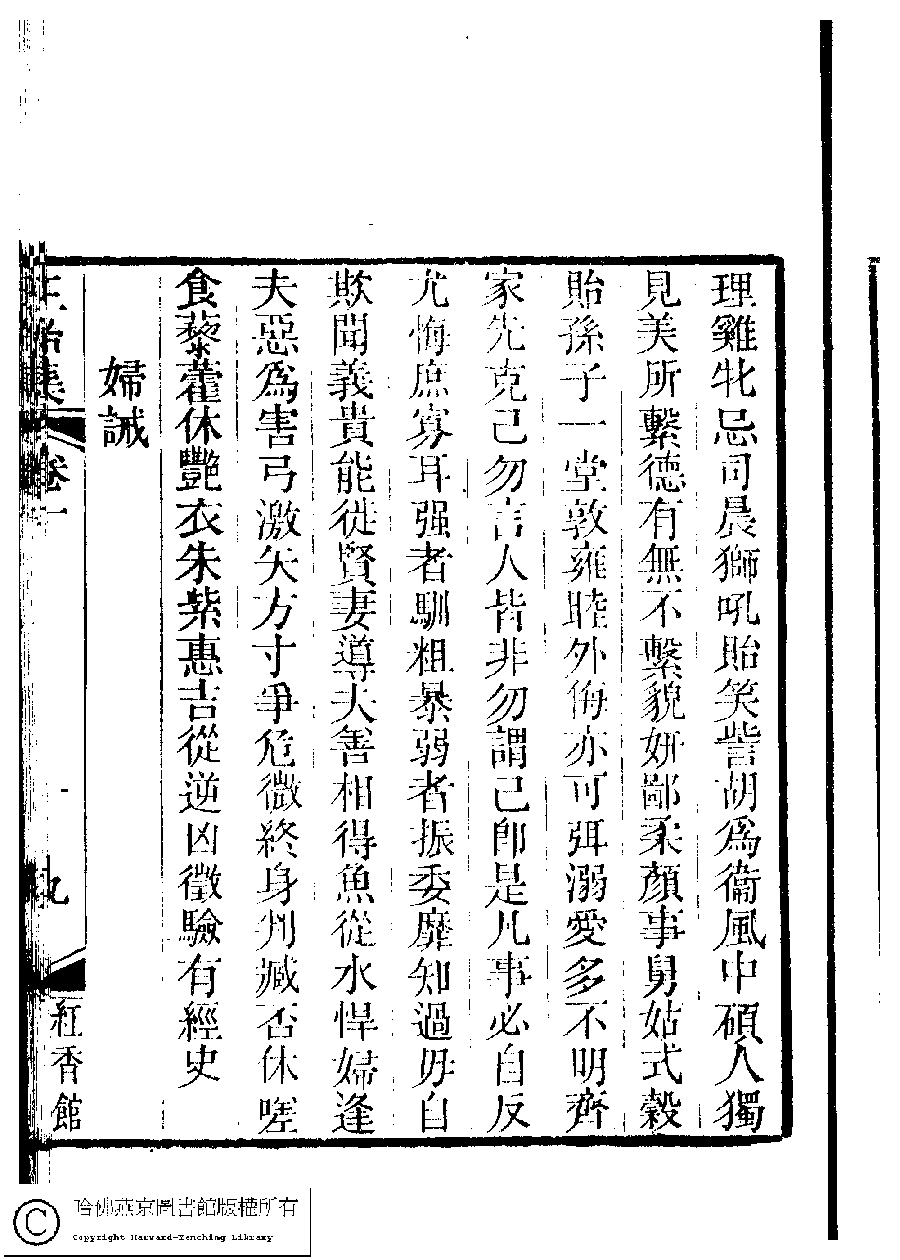 理雞牝忌司晨獅吼貽笑訾胡爲衞風中碩人獨
見美所繫德有無不繫貌妍鄙柔顏事舅姑式穀
貽孫子一堂敦雍睦外侮亦可弭溺愛多不明齊
家先克己勿言人皆非勿謂己卽是凡事必自反
尤悔庶寡耳强者馴粗暴弱者振委靡知過毋自
欺聞義貴能徙賢妻導夫善相得魚從水悍婦逢
夫惡爲害弓激矢方寸爭危微終身判臧否休嗟
食藜藿休豔衣朱紫惠吉從逆凶徵驗有經史
婦誡
正始集 卷一
九
紅香館
哈佛燕京圖書館版權所有
Copyright Harvard-Yenching Library